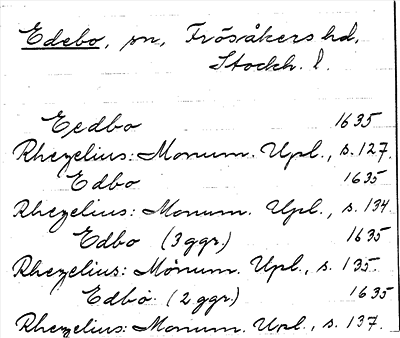 Edebo, sn, Frösåkers hd,
Stockh. l.
Eedbo 1635
Rhezelius: Monum. Upl., s. 127.
Edbo 1635
Rhezelius: Monum. Upl., s. 134
Edbo (3 ggr.) 1635
Rhezelius: Monum. Upl., s. 135.
Edbo (2 ggr) 1635
Rhezelius: Monum. Upl., s. 137.